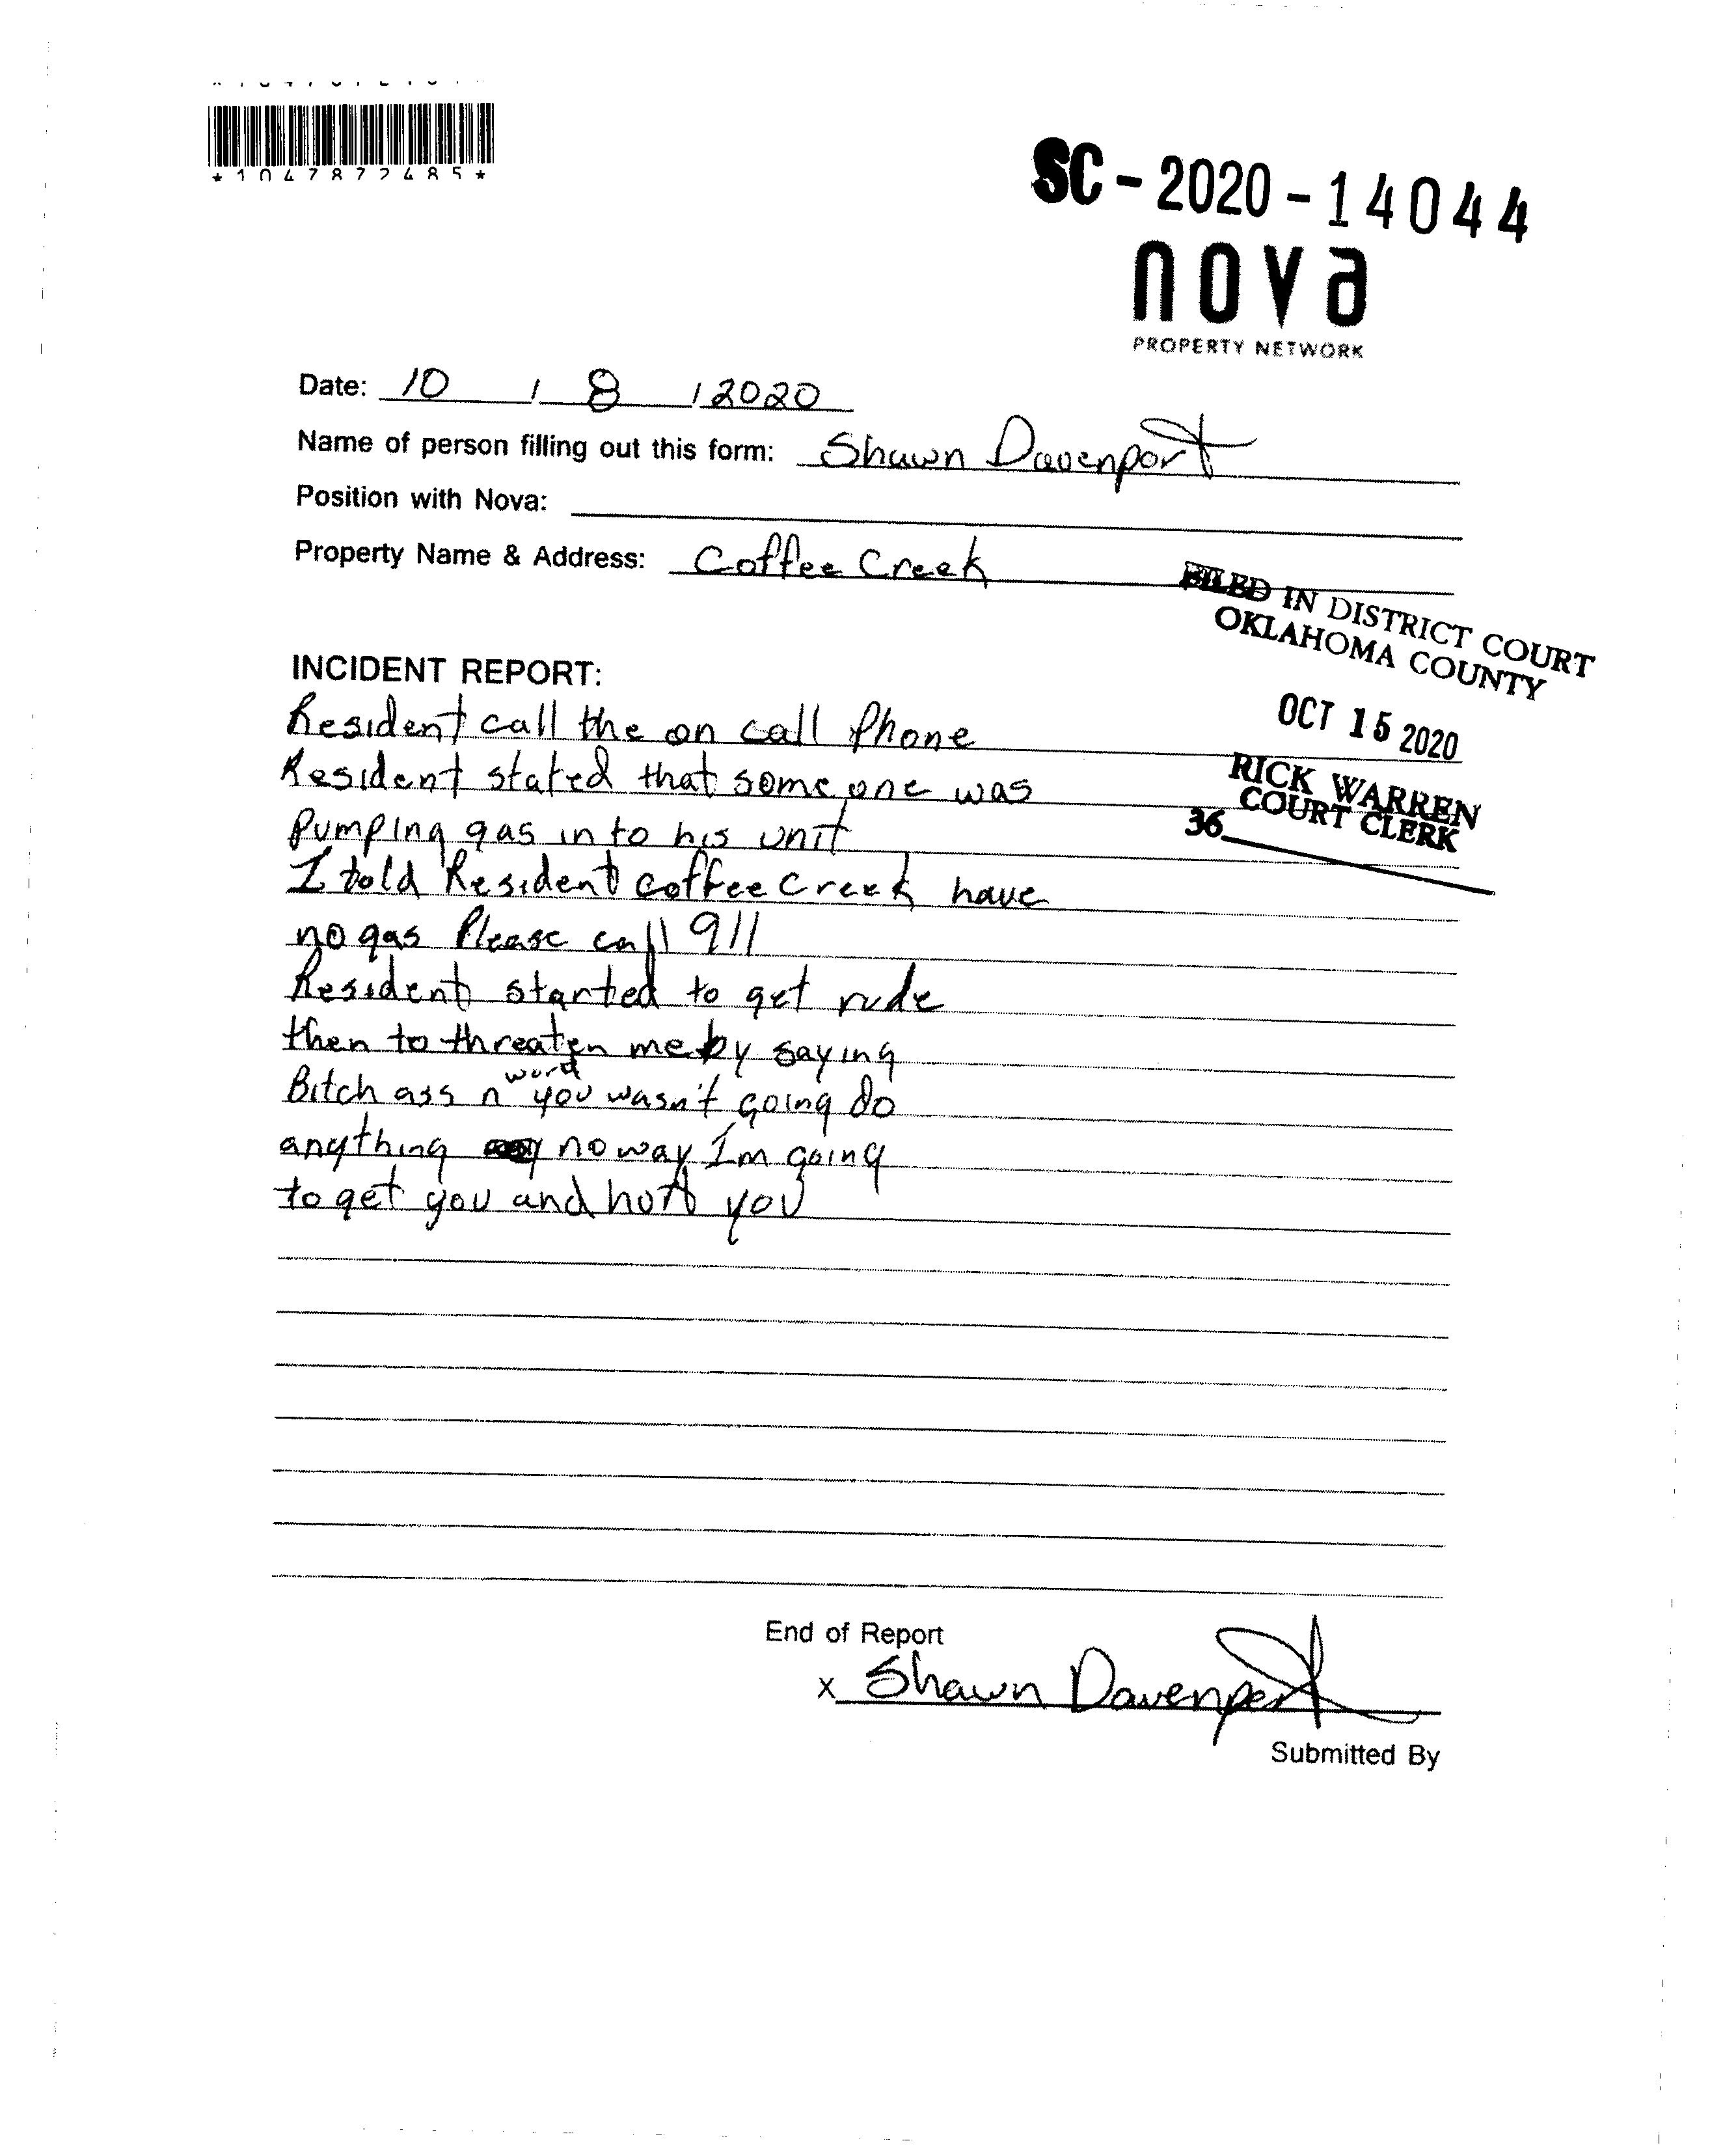 *1047872485*
SC-2020-14044
nova
PROPERTY NETWORK
Date: 10 / 8 / 2020
Name of person filling out this form: Shawn Davenport
Position with Nova:
Property Name & Address: Coffee Creek
FILED IN DISTRICT COURT
OKLAHOMA COUNTY
OCT 15 2020
RICK WARREN
COURT CLERK
36
INCIDENT REPORT:
Resident call the on call Phone
Resident stated that some one was
Pumping gas in to his unit
I told Resident Coffee Creek have
no gas Please call 911
Resident started to get rude
then to threaten me by saying
Bitch ass n word you wasn't going do
anything no way I'm going
to get you and hurt you
End of Report
x Shawn Davenport
Submitted By